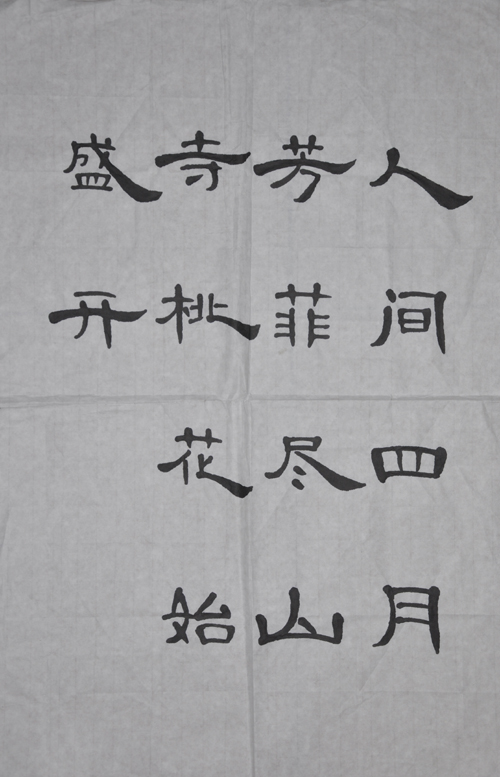 人间四月
芳菲尽山
寺桃花始
盛开